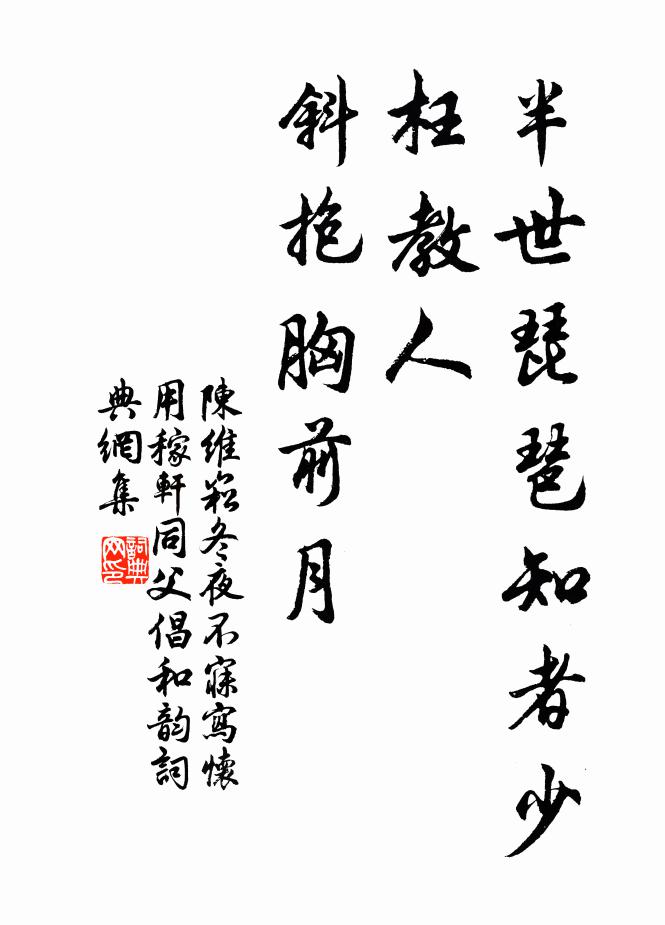 半世琵琶知者少
枉教人
斜抱胸前月
陳維崧冬夜不寐寫懷
用稼軒同父倡和韵詞
典網集
詞典網印